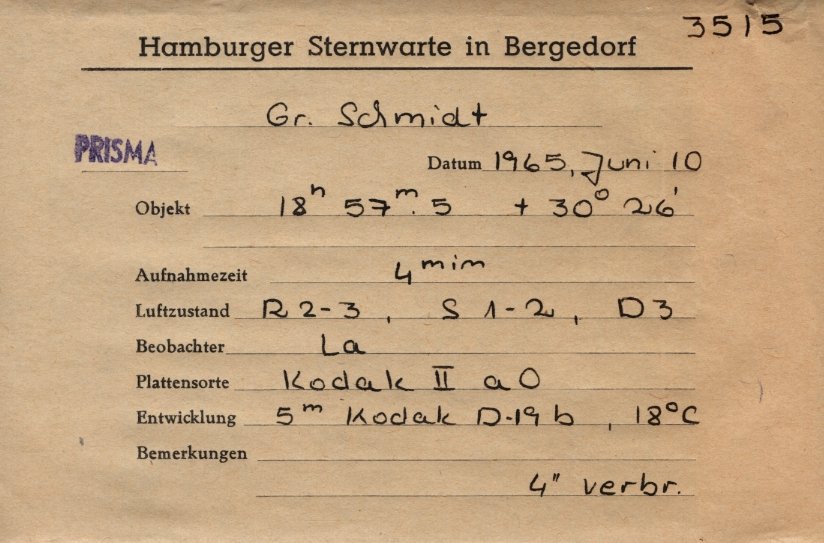 3515
Hamburger Sternwarte in Bergedorf
Gr. Schmidt
PRISMA
Datum 1965, Juni 10
Objekt 18ʰ 57ᵐ.5 + 30° 26'
Aufnahmezeit 4 min
Luftzustand R 2-3, S 1-2, D 3
Beobachter La
Plattensorte Kodak II a O
Entwicklung 5ᵐ Kodak D-19 b, 18°C
Bemerkungen
4" verbr.